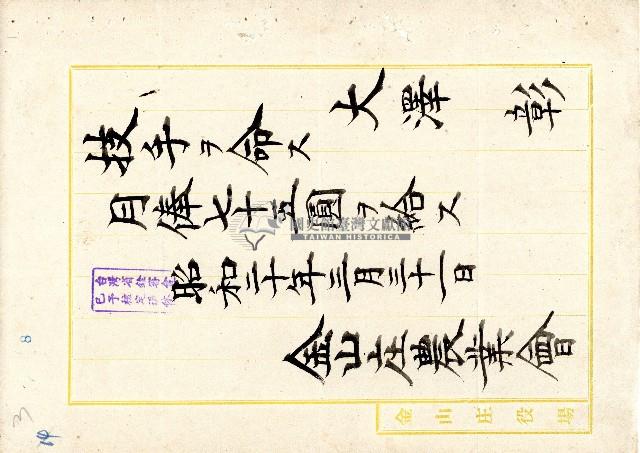 大澤 彰
技手ヲ命ス
月俸七十五圓ヲ給ス
昭和二十年三月三十一日
金山庄農業會
金山庄役場
國史館臺灣文獻館
TAIWAN HISTORICA
台灣省
已予核定
8
3